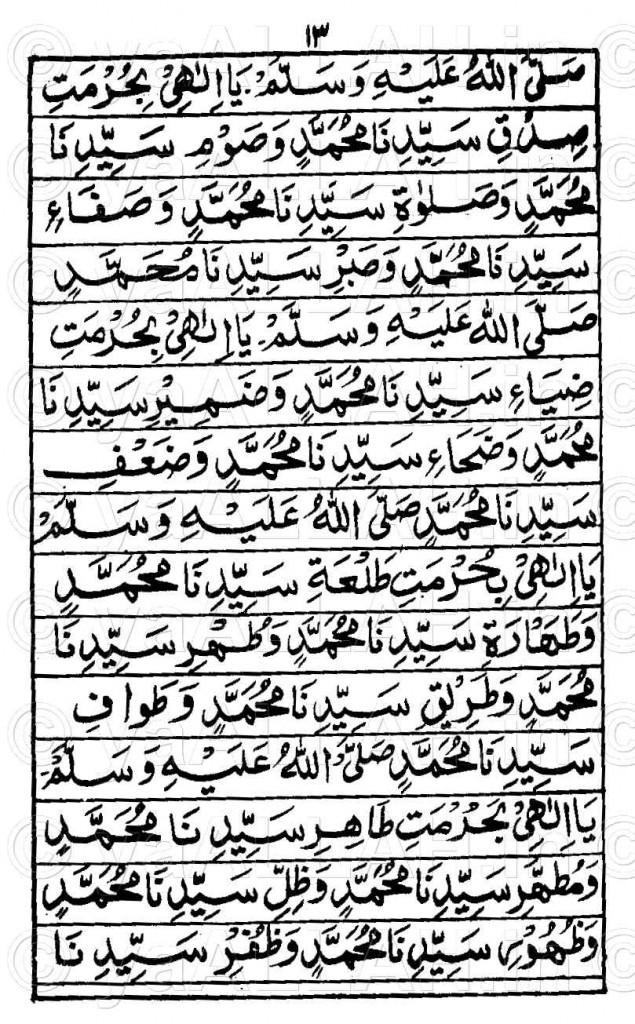 ١٣
صَلَّى اللهُ عَلَيْهِ وَسَلَّمْ۔ يَا اِلٰهِىْ بِحُرْمَتِ
صِدْقِ سَيِّدِنَا مُحَمَّدٍ وَصَوْمِ سَيِّدِنَا
مُحَمَّدٍ وَصَلٰوةِ سَيِّدِنَا مُحَمَّدٍ وَصَفَاءِ
سَيِّدِنَا مُحَمَّدٍ وَصَبْرِ سَيِّدِنَا مُحَمَّدٍ
صَلَّى اللهُ عَلَيْهِ وَسَلَّمْ۔ يَا اِلٰهِىْ بِحُرْمَتِ
ضِيَاءِ سَيِّدِنَا مُحَمَّدٍ وَضَمِيْرِ سَيِّدِنَا
مُحَمَّدٍ وَضَحَاءِ سَيِّدِنَا مُحَمَّدٍ وَضَعْفِ
سَيِّدِنَا مُحَمَّدٍ صَلَّى اللهُ عَلَيْهِ وَسَلَّمْ
يَا اِلٰهِىْ بِحُرْمَتِ طَلْعَةِ سَيِّدِنَا مُحَمَّدٍ
وَطَهَارَةِ سَيِّدِنَا مُحَمَّدٍ وَطُهْرِ سَيِّدِنَا
مُحَمَّدٍ وَطَرِيْقِ سَيِّدِنَا مُحَمَّدٍ وَطَوَافِ
سَيِّدِنَا مُحَمَّدٍ صَلَّى اللهُ عَلَيْهِ وَسَلَّمْ
يَا اِلٰهِىْ بِحُرْمَتِ طَاهِرِ سَيِّدِنَا مُحَمَّدٍ
وَمُطَهِّرِ سَيِّدِنَا مُحَمَّدٍ وَظِلِّ سَيِّدِنَا مُحَمَّدٍ
وَظُهُوْرِ سَيِّدِنَا مُحَمَّدٍ وَظُفْرِ سَيِّدِنَا